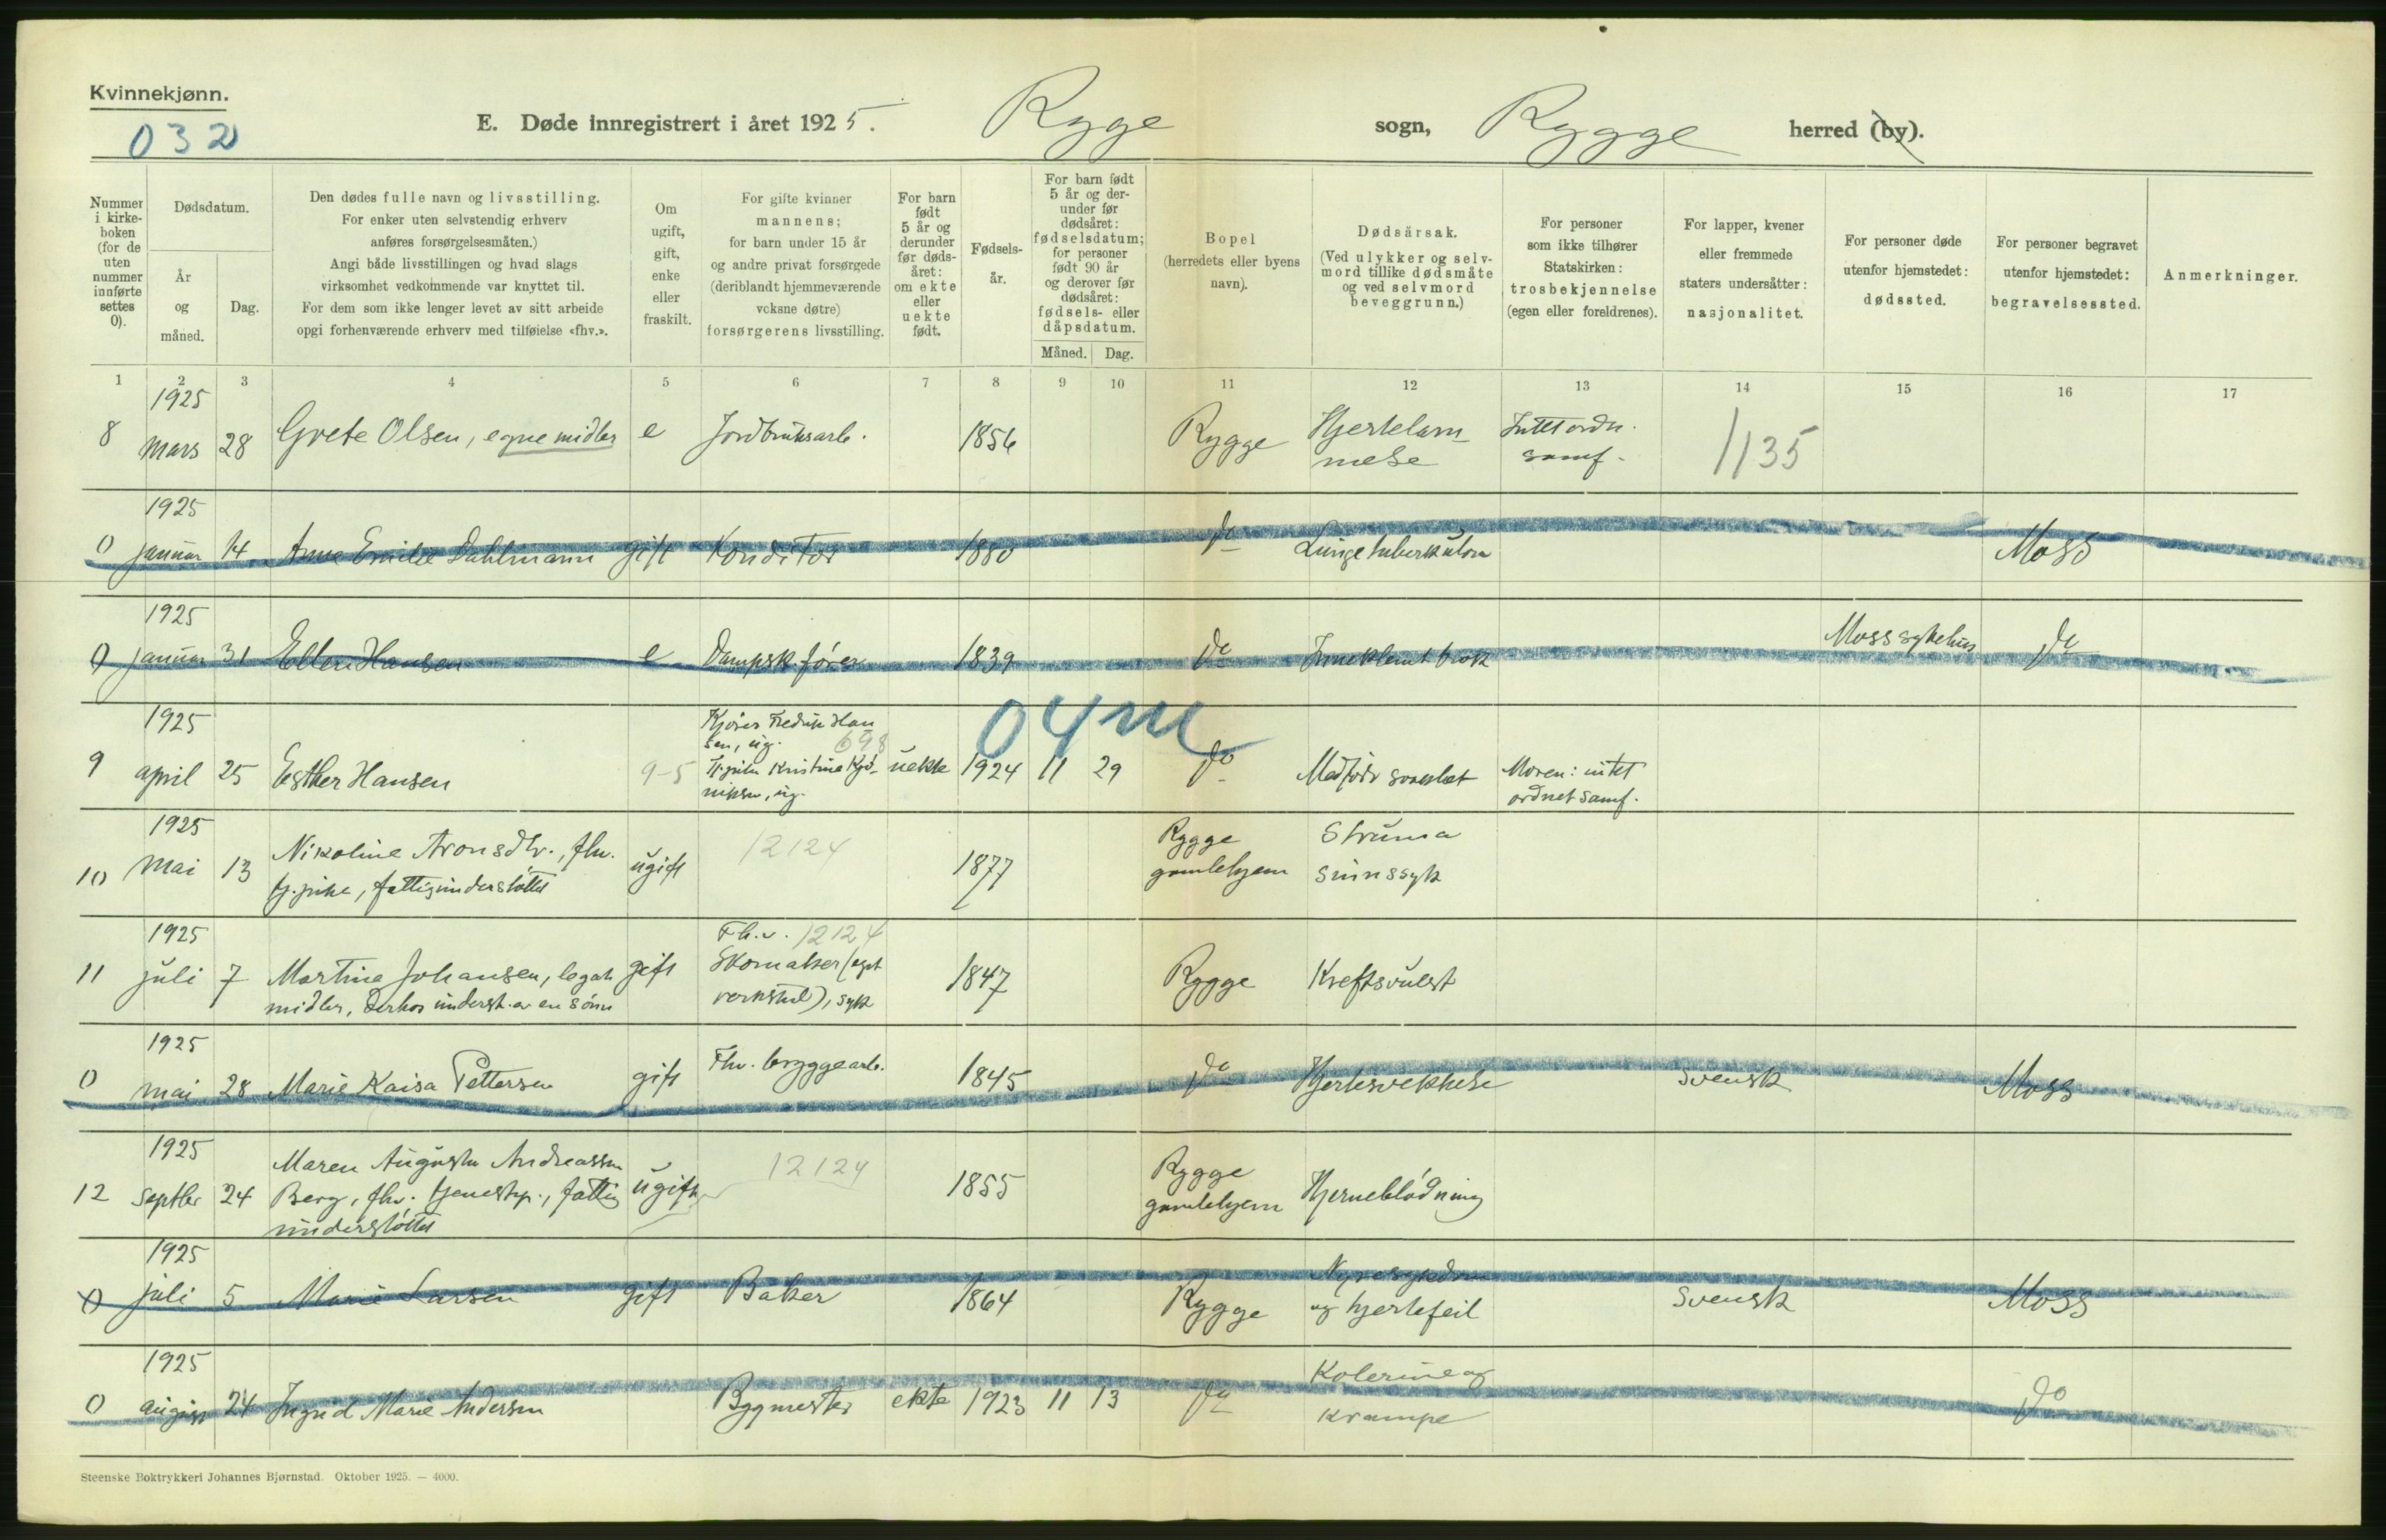 Kvinnekjønn.
032
E. Døde innregistrert i året 1925. Rygge sogn, Rygge herred (by).
Nummer i kirke-boken (for de uten nummer innførte settes 0).
Dødsdatum.
År og måned.
Dag.
Den dødes fulle navn og livsstilling.
For enker uten selvstendig erhverv
anføres forsørgelsesmåten.)
Angi både livsstillingen og hvad slags
virksomhet vedkommende var knyttet til.
For dem som ikke lenger levet av sitt arbeide
opgi forhenværende erhverv med tilføielse «fhv.».
Om ugift, gift, enke eller fraskilt.
For gifte kvinner
mannens;
for barn under 15 år
og andre privat forsørgede
(deriblandt hjemmeværende
voksne døtre)
forsørgerens livsstilling.
For barn født 5 år og derunder før døds-året: om ekte eller uekte født.
Fødsels-år.
For barn født 5 år og der-under før dødsåret: fødselsdatum; for personer født 90 år og derover før dødsåret: fødsels- eller dåpsdatum.
Måned. Dag.
Bopel
(herredets eller byens
navn).
Dødsårsak.
(Ved ulykker og selv-
mord tillike dødsmåte
og ved selvmord
beveggrunn.)
For personer
som ikke tilhører
Statskirken:
trosbekjennelse
(egen eller foreldrenes).
For lapper, kvener
eller fremmede
staters undersåtter:
nasjonalitet.
For personer døde
utenfor hjemstedet:
dødssted.
For personer begravet
utenfor hjemstedet:
begravelsessted.
Anmerkninger.
1 2 3 4 5 6 7 8 9 10 11 12 13 14 15 16 17
1925
8 mars 28 Grete Olsen, egne midler e Jordbruksarb. 1856 Rygge Hjertelam-
melse
Intet ordn.
samf.
1135
1925
0 januar 14 Anna Emilie Dahlmann gift Konditor 1880 do Lungetuberkulose Moss
1925
0 januar 31 Ellen Hansen e Dampsk.fører 1839 do Inneklemt brok Moss sykehus do
04 m
1925
9 april 25 Esther Hansen 9-5
Kjører Fredrik Han
sen, ug. 698
Tj.pike Kristine
uekte 1924 11 29 do Medfødt svakhet
Moren: intet
ordnet samf.
1925
10 mai 13 Nikoline Aronsdtr., fhv.
tj.pike, fattigunderstøttet
ugift 12124 1877
Rygge
gamlehjem
Struma
sinnssyk
1925
11 juli 7 Martina Johansen, legat
midler, derhos underst. av en sønn
gift
Fh.v. 12124
Skomaker (eget
verksted), syk
1847 Rygge Kreftsvulst
1925
0 mai 28 Marie Kaisa Pettersen gift Fhv. bryggearb. 1845 do Hjertesvekkelse svensk Moss
1925
12 septbr 24 Maren Augusta Andreassen
Berg, fhv. tjenestep., fattig
understøttet
ugift 12124 1855
Rygge
gamlehjem
Hjerneblødning
1925
0 juli 5 Marie Larsen gift Baker 1864 Rygge
Nyresykdom
og hjertefeil
svensk Moss
1925
0 august 24 Ingrid Marie Andersen Byggmester ekte 1923 11 13 do
Kolerine og
krampe
do
Steenske Boktrykkeri Johannes Bjørnstad. Oktober 1925. — 4000.